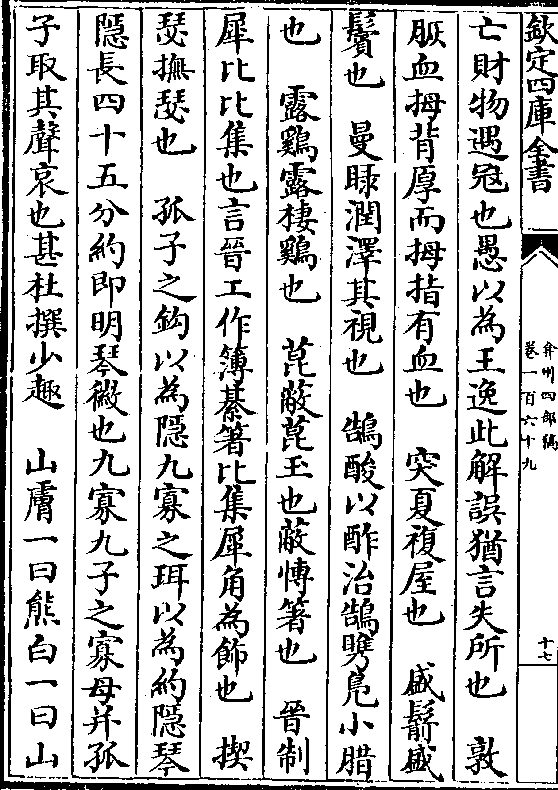 欽定四庫全書
弇州四部稿
卷一百六十九
十七
亡財物遇冦也愚以為王逸此解誤猶言失所也　敦
脄血拇背厚而拇指有血也　突夏複屋也　盛鬋盛
鬢也　曼睩潤澤其視也　鵠酸以酢治鵠臇鳬小腊
也　露鷄露棲鷄也　菎蔽菎玉也蔽慱箸也　晉制
犀比比集也言晉工作簿綦箸比集犀角為飾也　揳
瑟撫瑟也　孤子之鈎以為隠九寡之珥以為約隠琴
隠長四十五分約即明琴徽也九寡九子之寡母并孤
子取其聲哀也甚杜撰少趣　山膚一曰熊白一曰山